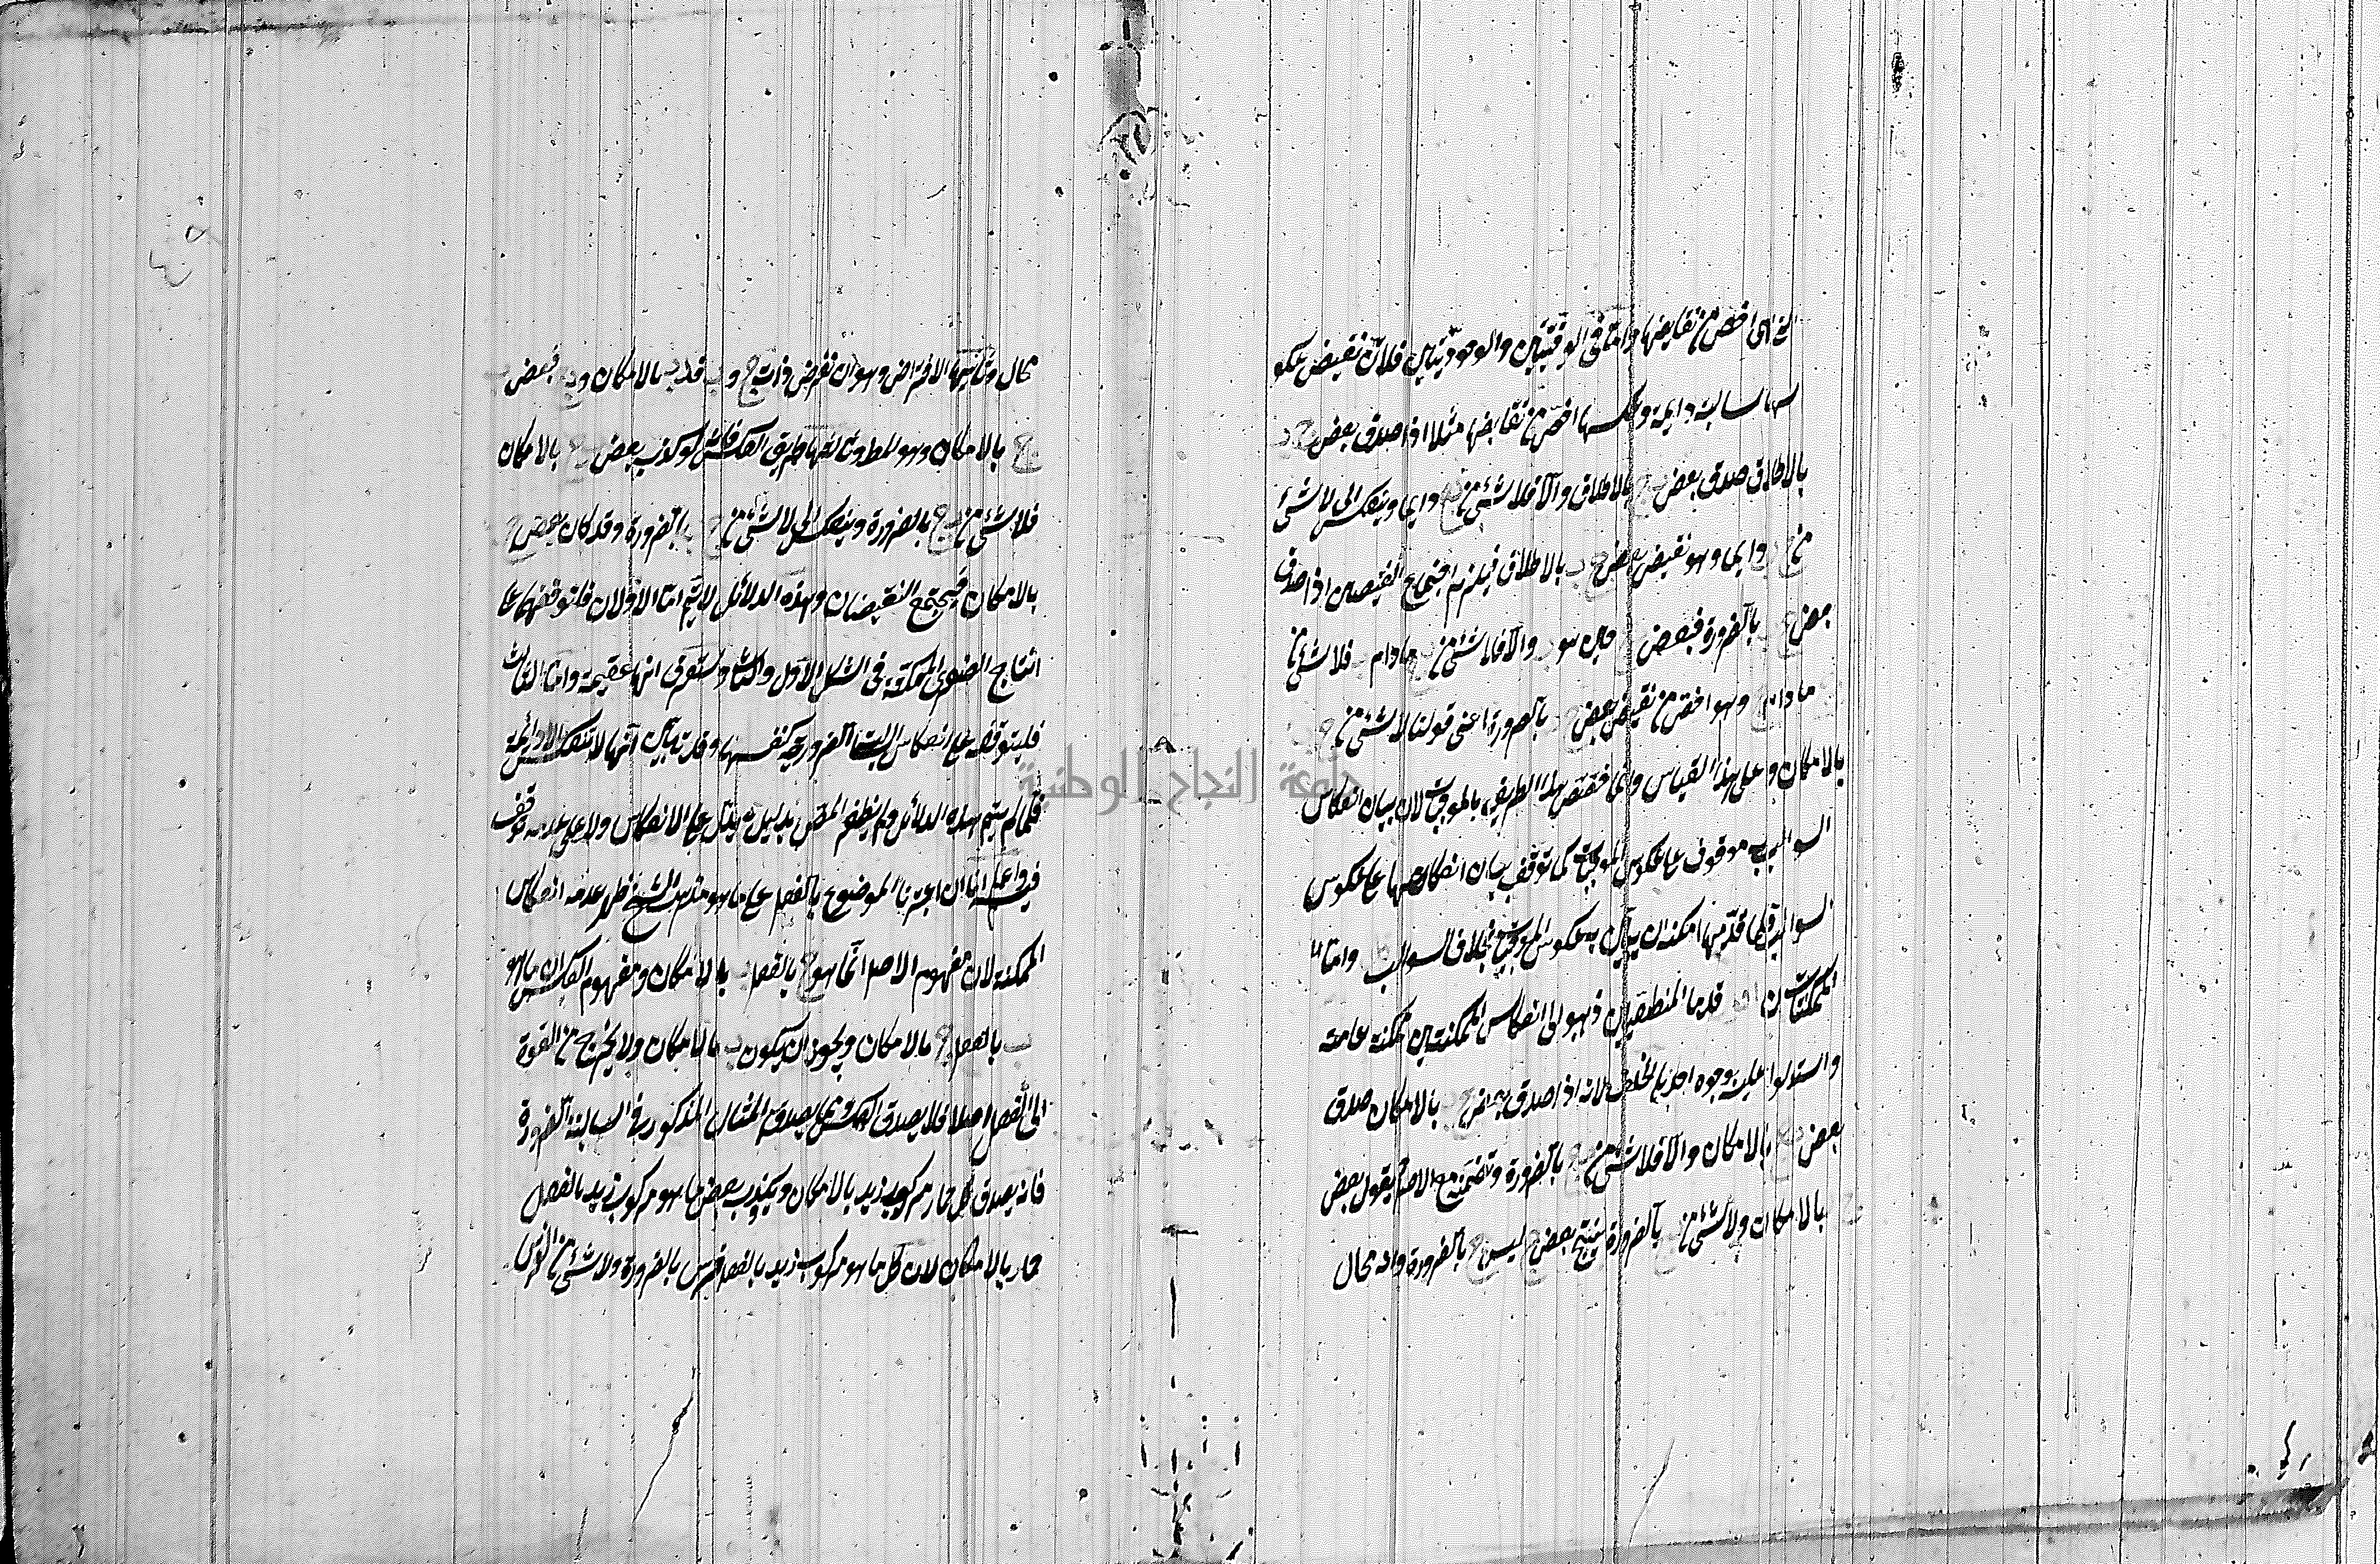 اخرى اخص من نقايضها واما فى الوقتيتين والوجوديتين فلان نقيض عكو
سها سالبة دايمة وعكسها اخص من نقايضها مثلا اذا صدق بعض ج ب
بالاطلاق صدق بعض ب ج بالاطلاق والا فلا شئ من ب ج دايما وينعكس الى لا شئ
من ج ب دايما وهو نقيض بعض ج ب بالاطلاق فيلزم اجتماع النقيضين اذا صدق
بعض ج ب بالضرورة فبعض ب ج حين هو ب والا فلا شئ من ب ج ما دام ب فلا شئ من
ما دام ج وهو اخص من نقيض بعض ج ب بالضرورة اعنى قولنا لا شئ من ج
بالامكان وعلى هذا القياس وانما خصص هذا الطريق بالموجبات لان بيان انعكاس
السوالب موقوف على عكوس الموجبات كما توقف بيان انعكاسها على عكوس
السوالب فلما قدمها امكنه ان يبين به عكوس الموجبات بخلاف السوالب واما
الممكنتان قدما المنطقيين ذهبوا الى انعكاس الممكنتين ممكنة عامة
واستدلوا عليه بوجوه احدها الخلف لانه اذا صدق بعض ج ب بالامكان صدق
بعض ب ج بالامكان والا فلا شئ من ب ج بالضرورة وتضمه مع الاصل يقول بعض
ج ب بالامكان ولا شئ من ب ج بالضرورة ينتج بعض ج ليس ج بالضرورة وانه محال
محال وثانيها الافتراض وهو ان نفرض ذات ج و ب د فد ب بالامكان ود ج فبعض ب
ج بالامكان وهو المط وثالثها طريق العكس فانه لو كذب بعض ب ج بالامكان
فلا شئ من ب ج بالضرورة وينعكس الى لا شئ من ج ب بالضرورة وقد كان بعض ج
بالامكان فيجتمع النقيضان وهذه الدلائل لا تتم اما الاولان فلتوقفهما على
انتاج الصغرى الممكنة فى الشكل الاول والثالث وستعرف انها عقيمة واما الثالث
فليتوقفه على انعكاس السالبة الضرورية كنفسها وقد تبين انها لا تنعكس الا دائمة
فلما لم يتم هذه الدلائل ولم يظفر المص بدليل يدل على الانعكاس ولا على عدمه توقف
فيه واعلم انا ان اعتبرنا الموضوع بالفعل على ما هو مذهب الشيخ ظهر عدم انعكاس
الممكنة لان مفهوم الاصل انما هو ج بالفعل ب بالامكان ومفهوم العكس ان ما هو
ب بالفعل ج بالامكان ويجوز ان يكون ب بالامكان ولا يخرج من القوة
الى الفعل اصلا فلا يصدق العكس ومما يصدقه المثال المذكور فى السالبة الضرورة
فانه يصدق كل حمار مركوب زيد بالامكان ويكذب بعض ما هو مركوب زيد بالفعل
حمار بالامكان لان كل ما هو مركوب زيد بالفعل فرس بالضرورة ولا شئ من الفرس
جامعة النجاح الوطنية